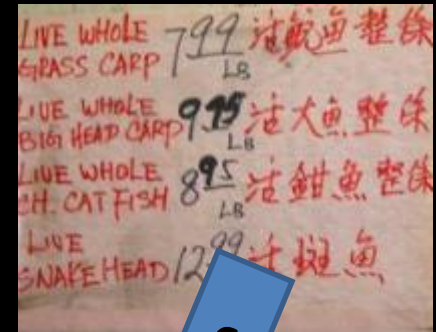 LIVE WHOLE
GRASS CARP 7.99 LB 活鯇魚 整條
LIVE WHOLE
BIG HEAD CARP 9.95 LB 活大魚 整條
LIVE WHOLE
CH. CATFISH 8.95 LB 活鉗魚 整條
LIVE
SNAKEHEAD 12.99 活斑魚